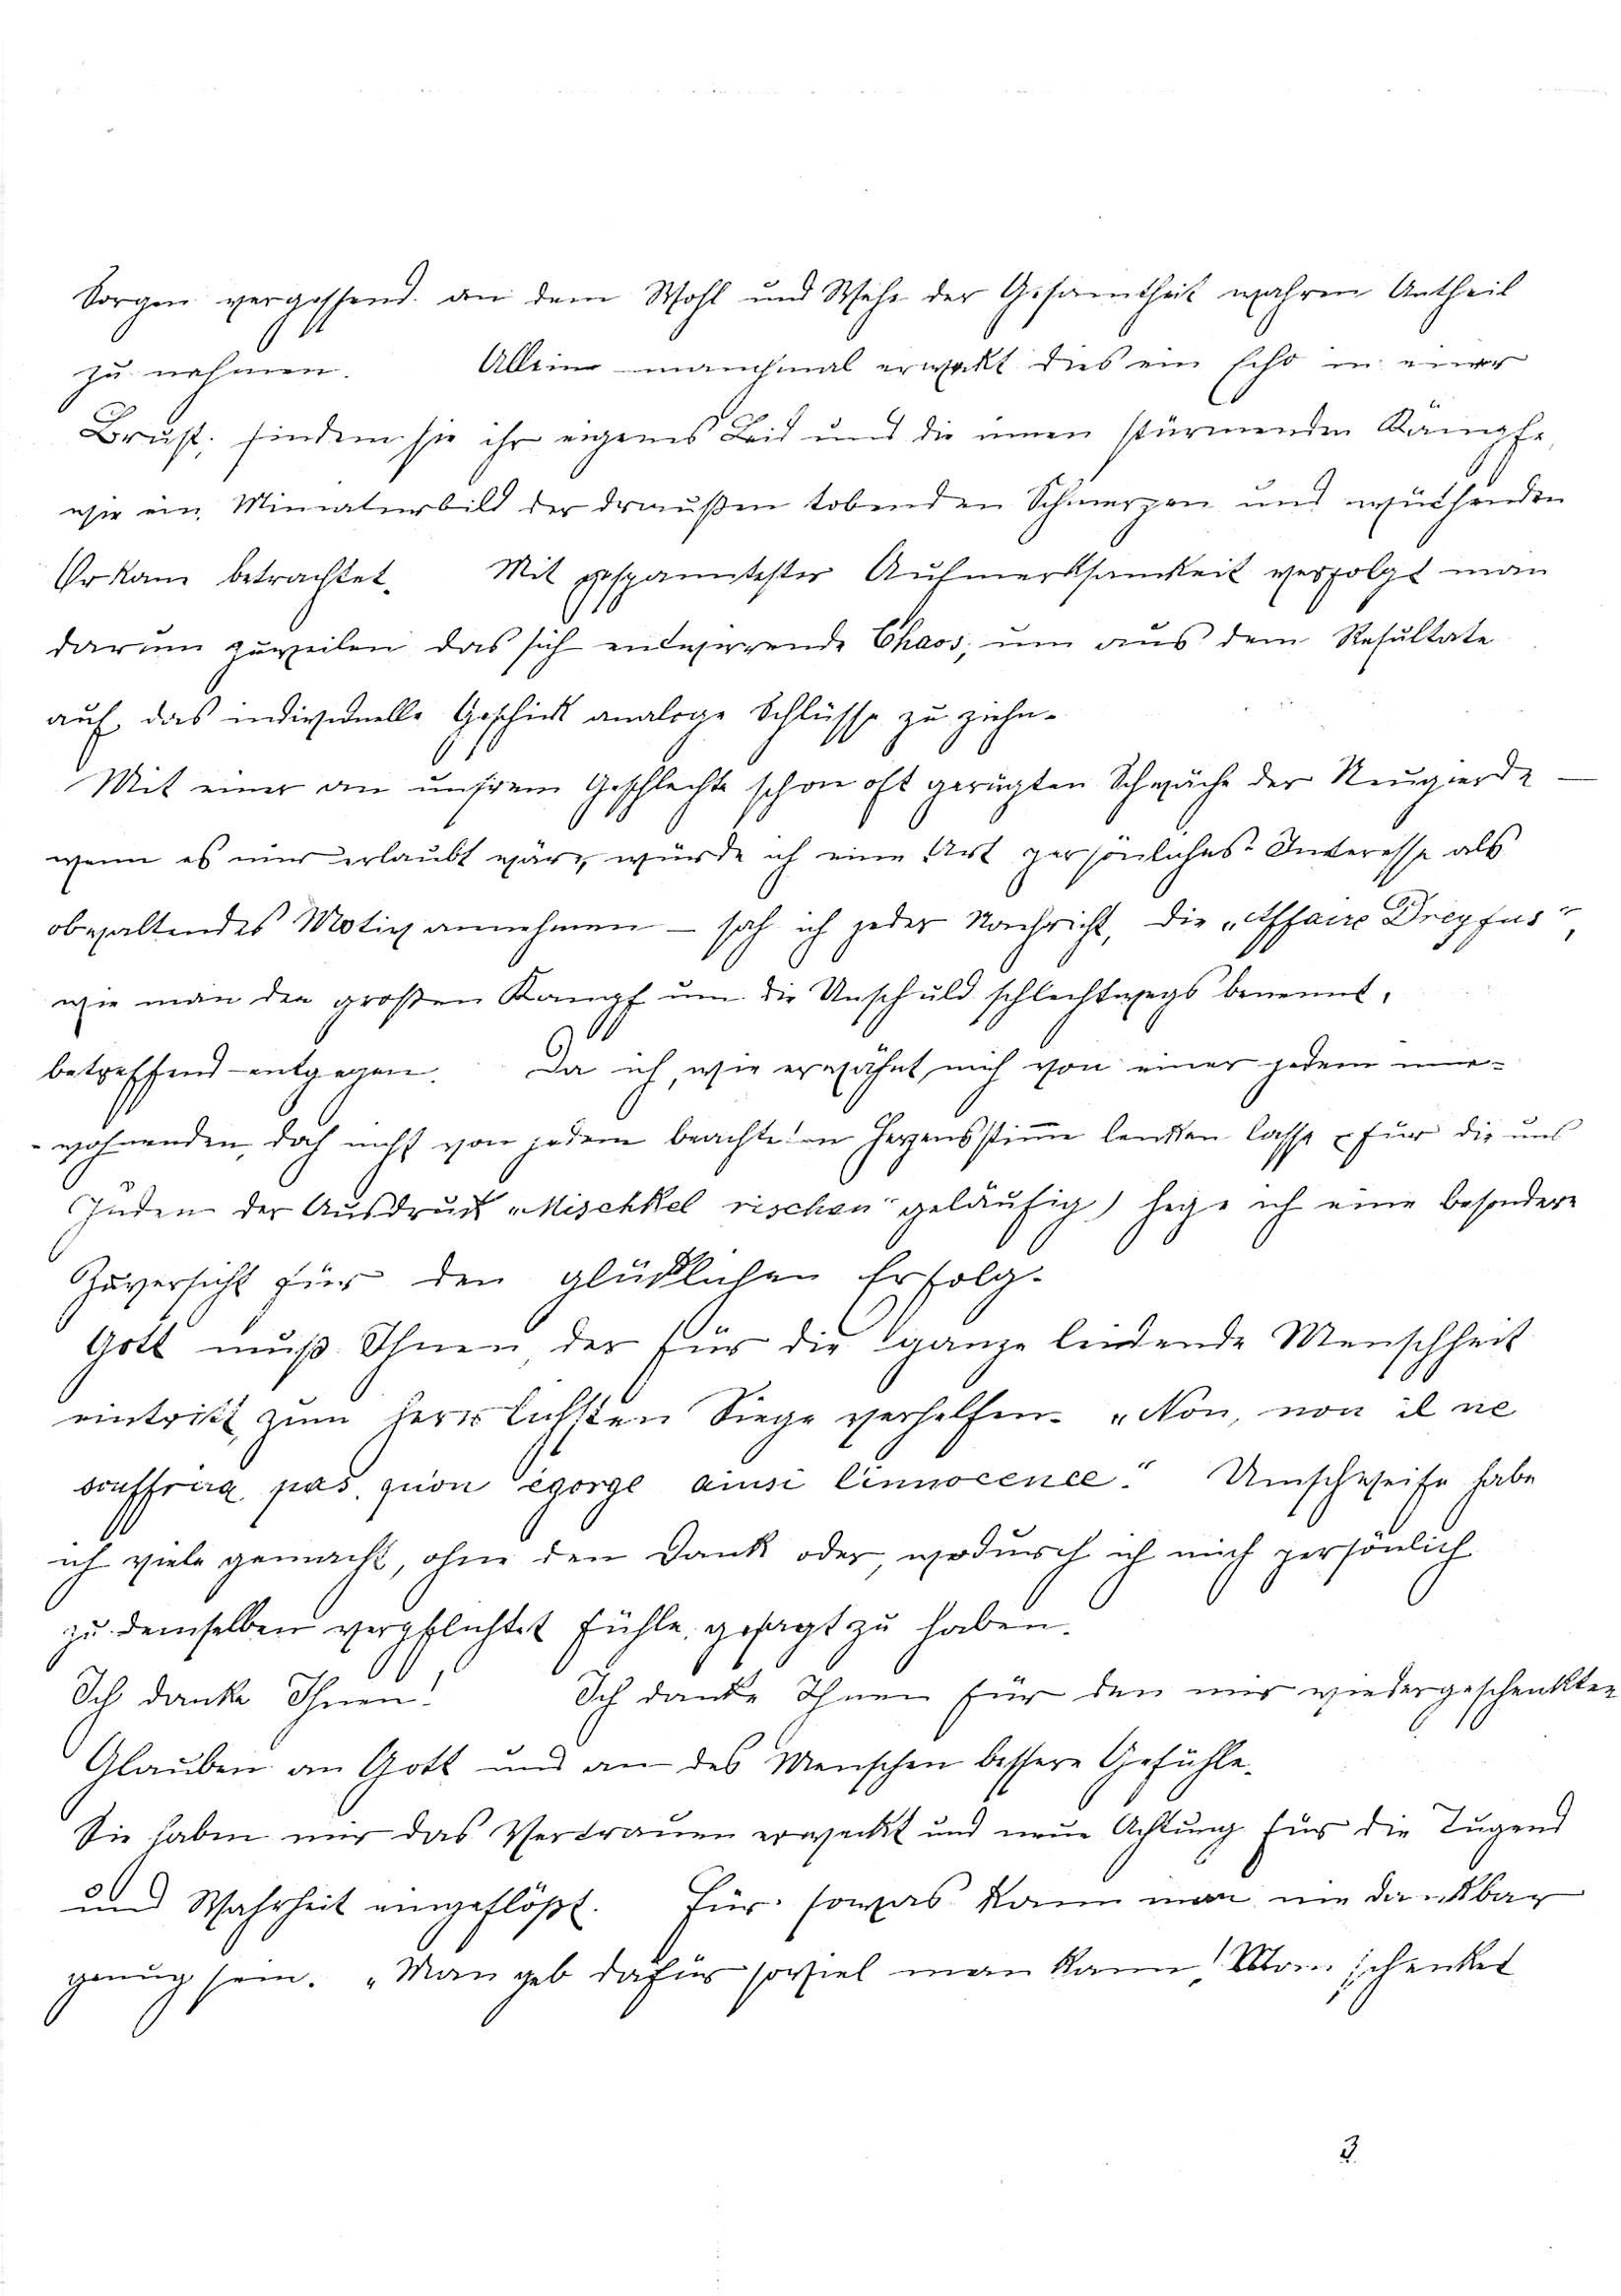 Sorgen vergessend. an dem Wohl und Wehe der Gesamtheit wahren Antheil
zu nehmen. Allein manchmal erwekt dies ein Echo in einer
Brust, sie ihr eigenes Leid und die innen stürmenden Kämpfe,
wie ein Miniaturbild der draußen tobenden Schmerzen und wüthenden
Orkane betrachtet. Mit gespanntester Aufmerksamkeit verfolgt man
darum zuweilen das sich entwirrende Chaos, um aus dem Resultate
auf das individuelle Geschick analoge Schlüsse zu ziehn.
Mit einer an unsrem Geschlechte schon oft gerügten Schwäche der Neugierde –
wenn es mir erlaubt wäre, würde ich eine Art persönliches Interesse als
obwaltendes Motiv annehmen – sah ich jeder Nachricht, die „Affaire Dreyfus",
wie man den großen Kampf um die Unschuld schlechtwegs benennt,
betreffend entgegen. Da ich, wie erwähnt, mich von einer jedem inne-
-wohnenden, doch nicht von jedem beachteten Herzensstim̄e lenken lasse (für die uns
Juden der Ausdruck „Mischkel rischon" geläufig) hege ich eine besondere
Zuversicht für den glücklichen Erfolg.
Gott muß Ihnen, der für die ganze leidende Menschheit
eintritt, zum herrlichsten Siege verhelfen. „Non, non il ne
souffrira pas, qu'on égorge ainsi l'innocence." Umschweife habe
ich viele gemacht, ohne den Dank oder, wodurch ich mich persönlich
zu demselben verpflichtet fühle, gesagt zu haben.
Ich danke Ihnen! Ich danke Ihnen für den mir wiedergeschenkten
Glauben an Gott und an des Menschen bessere Gefühle.
Sie haben mir das Vertrauen erweckt und neue Achtung für die Tugend
und Wahrheit eingeflößt. Für sowas kann man nie dankbar
genug sein. „Man geb dafür soviel man kann! Man schenket
3.